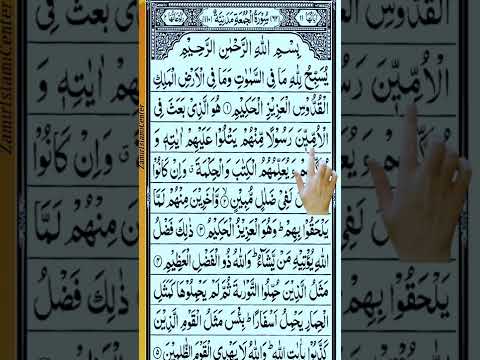 سُوْرَةُ الْجُمُعَةِ مَدَنِيَّةٌ
بِسْمِ اللّٰهِ الرَّحْمٰنِ الرَّحِيْمِ
يُسَبِّحُ لِلّٰهِ مَا فِي السَّمٰوٰتِ وَمَا فِي الْاَرْضِ الْمَلِكِ
الْقُدُّوْسِ الْعَزِيْزِ الْحَكِيْمِ ۱ هُوَ الَّذِيْ بَعَثَ فِي
الْاُمِّيّٖنَ رَسُوْلًا مِّنْهُمْ يَتْلُوْا عَلَيْهِمْ اٰيٰتِهٖ وَ
وَيُعَلِّمُهُمُ الْكِتٰبَ وَالْحِكْمَةَ ۗ وَاِنْ كَانُوْا
لَفِيْ ضَلٰلٍ مُّبِيْنٍ ۲ وَّاٰخَرِيْنَ مِنْهُمْ لَمَّا
يَلْحَقُوْا بِهِمْ ؕ وَهُوَ الْعَزِيْزُ الْحَكِيْمُ ۳ ذٰلِكَ فَضْلُ
اللّٰهِ يُؤْتِيْهِ مَنْ يَّشَآءُ ؕ وَاللّٰهُ ذُو الْفَضْلِ الْعَظِيْمِ ۴
مَثَلُ الَّذِيْنَ حُمِّلُوا التَّوْرٰىةَ ثُمَّ لَمْ يَحْمِلُوْهَا كَمَثَلِ
الْحِمَارِ يَحْمِلُ اَسْفَارًا ؕ بِئْسَ مَثَلُ الْقَوْمِ الَّذِيْنَ
كَذَّبُوْا بِاٰيٰتِ اللّٰهِ ؕ وَاللّٰهُ لَا يَهْدِي الْقَوْمَ الظّٰلِمِيْنَ ۵
ZamurIslamiCenter